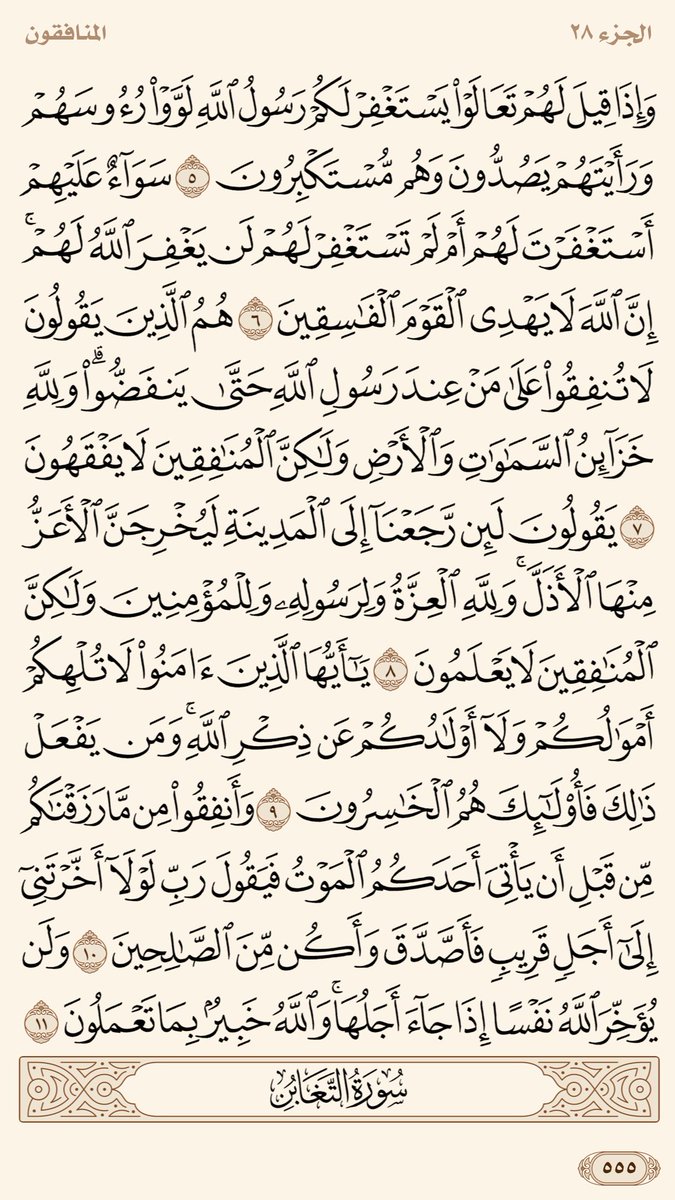 الجزء ٢٨ المنافقون
وَإِذَا قِيلَ لَهُمۡ تَعَالَوۡاْ يَسۡتَغۡفِرۡ لَكُمۡ رَسُولُ ٱللَّهِ لَوَّوۡاْ رُءُوسَهُمۡ
وَرَأَيۡتَهُمۡ يَصُدُّونَ وَهُم مُّسۡتَكۡبِرُونَ ٥ سَوَآءٌ عَلَيۡهِمۡ
أَسۡتَغۡفَرۡتَ لَهُمۡ أَمۡ لَمۡ تَسۡتَغۡفِرۡ لَهُمۡ لَن يَغۡفِرَ ٱللَّهُ لَهُمۡۚ
إِنَّ ٱللَّهَ لَا يَهۡدِي ٱلۡقَوۡمَ ٱلۡفَٰسِقِينَ ٦ هُمُ ٱلَّذِينَ يَقُولُونَ
لَا تُنفِقُواْ عَلَىٰ مَنۡ عِندَ رَسُولِ ٱللَّهِ حَتَّىٰ يَنفَضُّواْۗ وَلِلَّهِ
خَزَآئِنُ ٱلسَّمَٰوَٰتِ وَٱلۡأَرۡضِ وَلَٰكِنَّ ٱلۡمُنَٰفِقِينَ لَا يَفۡقَهُونَ
٧ يَقُولُونَ لَئِن رَّجَعۡنَآ إِلَى ٱلۡمَدِينَةِ لَيُخۡرِجَنَّ ٱلۡأَعَزُّ
مِنۡهَا ٱلۡأَذَلَّۚ وَلِلَّهِ ٱلۡعِزَّةُ وَلِرَسُولِهِۦ وَلِلۡمُؤۡمِنِينَ وَلَٰكِنَّ
ٱلۡمُنَٰفِقِينَ لَا يَعۡلَمُونَ ٨ يَٰٓأَيُّهَا ٱلَّذِينَ ءَامَنُواْ لَا تُلۡهِكُمۡ
أَمۡوَٰلُكُمۡ وَلَآ أَوۡلَٰدُكُمۡ عَن ذِكۡرِ ٱللَّهِۚ وَمَن يَفۡعَلۡ
ذَٰلِكَ فَأُوْلَٰٓئِكَ هُمُ ٱلۡخَٰسِرُونَ ٩ وَأَنفِقُواْ مِن مَّا رَزَقۡنَٰكُم
مِّن قَبۡلِ أَن يَأۡتِيَ أَحَدَكُمُ ٱلۡمَوۡتُ فَيَقُولَ رَبِّ لَوۡلَآ أَخَّرۡتَنِيٓ
إِلَىٰٓ أَجَلٖ قَرِيبٖ فَأَصَّدَّقَ وَأَكُن مِّنَ ٱلصَّٰلِحِينَ ١٠ وَلَن
يُؤَخِّرَ ٱللَّهُ نَفۡسًا إِذَا جَآءَ أَجَلُهَاۚ وَٱللَّهُ خَبِيرُۢ بِمَا تَعۡمَلُونَ ١١
سُورَةُ التَّغَابُنِ
٥٥٥